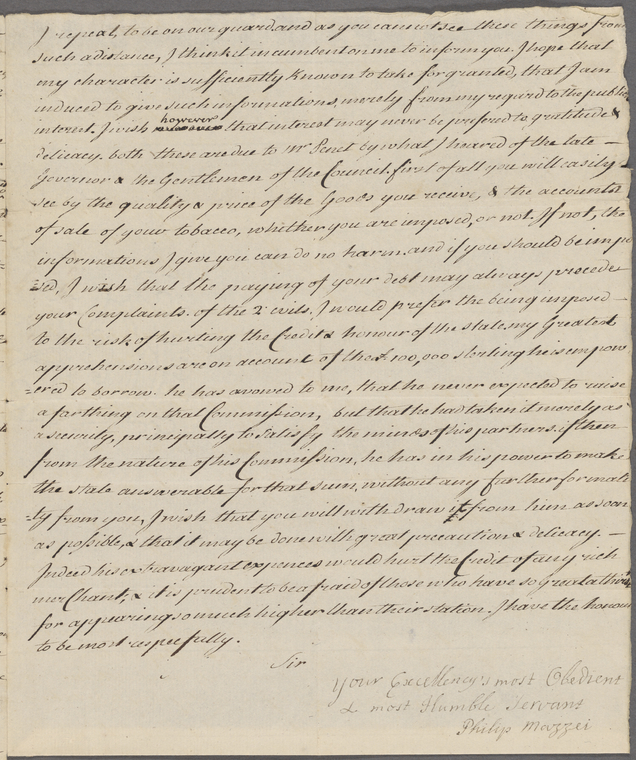 I repeat, to be on our guard. and as you cannot see these things from
such a distance, I think it incumbent on me to inform you. I hope that
my character is sufficiently known to take for granted, that I am
induced to give such informations, merely from my regard to the public
interest. I wish however that interest may never be prefered to gratitude &
delicacy. both these are due to Mr Penet by what I heared of the late –
Governor & the Gentlemen of the Council. first of all you will easily
see by the quality & price of the Goods you receive, & the accounts
of sale of your tobacco, whether you are imposed, or not. If not, the
informations I give you can do no harm. and if you should be impo
=sed, I wish that the paying of your debt may always precede
your Complaints. of the 2 evils, I would prefer the being imposed –
to the risk of hurting the Credit & honour of the state. my Greatest
apprehensions are on account of the £ 100,000 sterling he is empow
=ered to borrow. he has avowed to me, that he never expected to raise
a farthing on that Commission, but that he had taken it merely as
a security, principally to satisfy the minds of his partners. if then
from the nature of his Commission, he has in his power to make
the state answerable for that sum, without any further formali
=ty from you, I wish that you will withdraw it from him as soon
as possible, & that it may be done with great precaution & delicacy. –
Indeed his extravagant expences would hurt the Credit of any rich
merchant, & it is prudent to be afraid of those who have so great a thirst
for appearing so much higher than their station. I have the honour
to be most respectfully.
Sir
Your Excellency's most Obedient
& most Humble Servant
Philip Mazzei